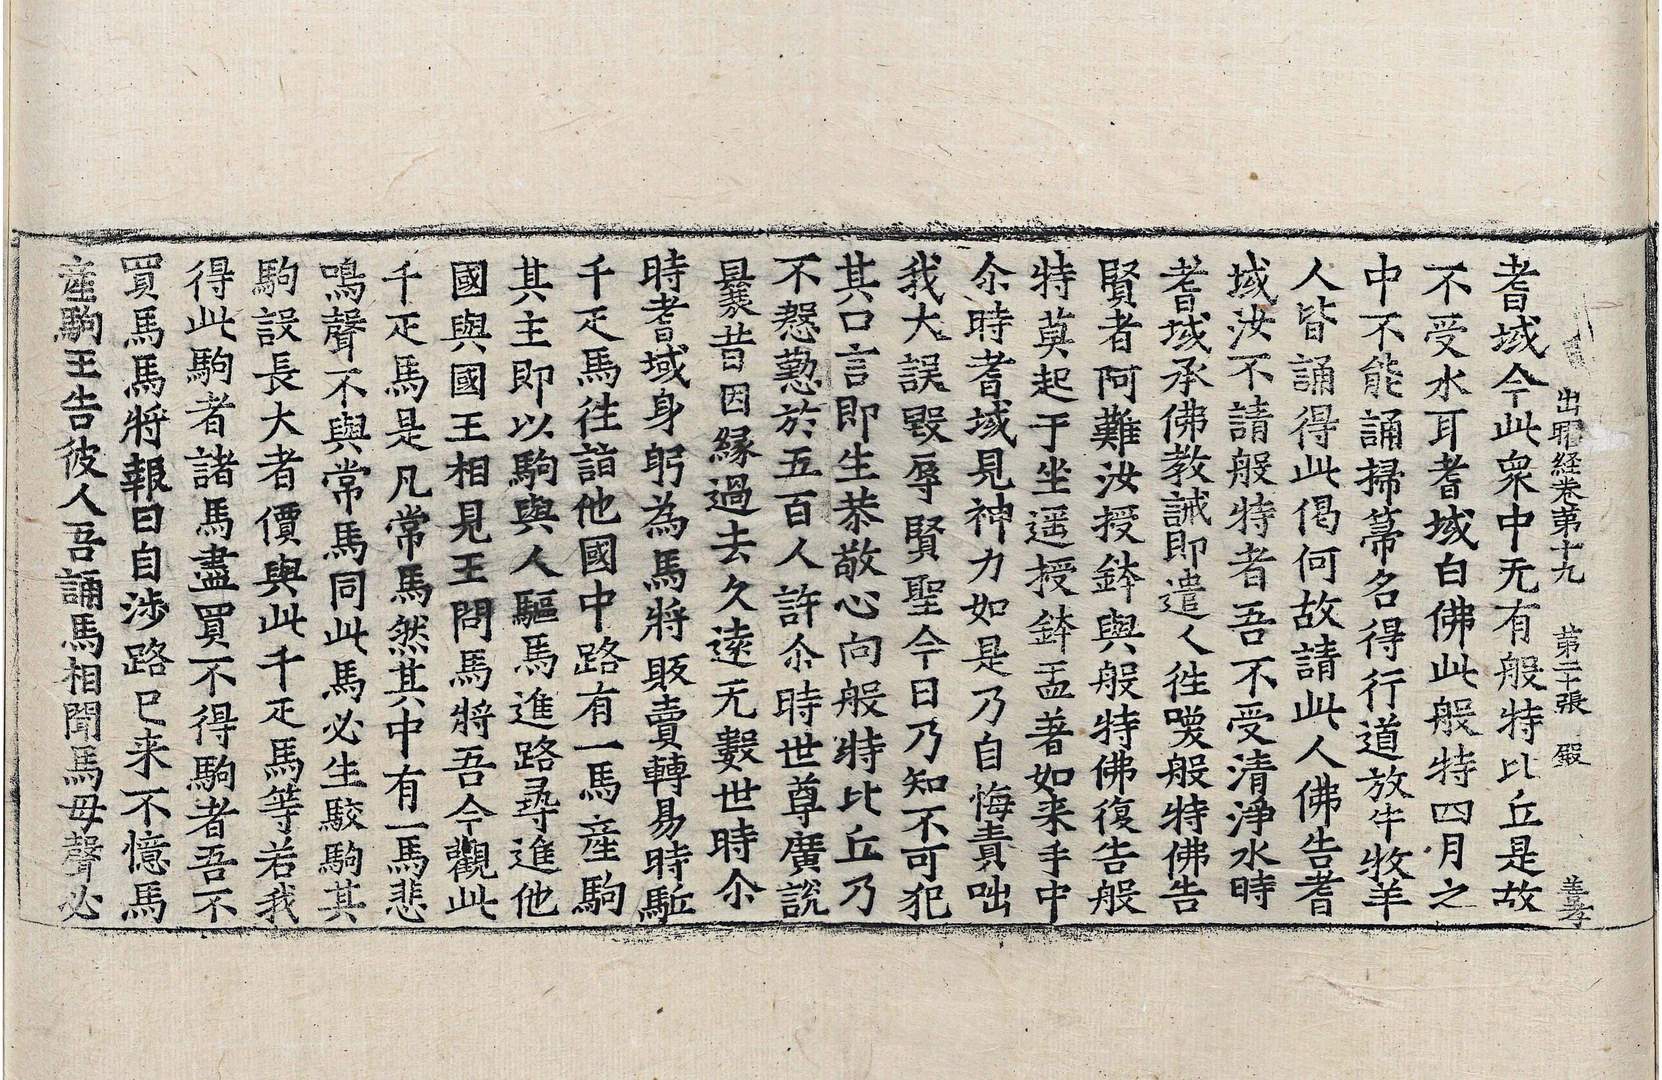 出曜経卷苐十九 苐二十張 㲉 善孝
耆域今此衆中无有般特比丘是故
不受水耳耆域白佛此般特四月之
中不能誦掃箒名得行道放牛牧羊
人皆誦得此偈何故請此人佛告耆
域汝不請般特者吾不受清淨水時
耆域承佛教誡即遣人徃喚般特佛告
賢者阿難汝授鉢與般特佛復告般
特莫起于坐遥授鉢盂著如来手中
尒時耆域見神力如是乃自悔責咄
我大誤毀辱賢聖今日乃知不可犯
其口言即生恭敬心向般特比丘乃
不慇懃於五百人許尒時世尊廣說
曩昔因縁過去久逺无數世時尒
時耆域身躬為馬將販賣轉易時駈
千疋馬徃詣他國中路有一馬產駒
其主即以駒與人驅馬進路尋進他
國與國王相見王問馬將吾今觀此
千疋馬是凡常馬然其中有一馬悲
鳴聲不與常馬同此馬必生駮駒其
駒設長大者價與此千疋馬等若我
得此駒者諸馬盡買不得駒者吾不
買馬馬將報曰自涉路已来不憶馬
產駒王告彼人吾誦馬相聞馬母聲必